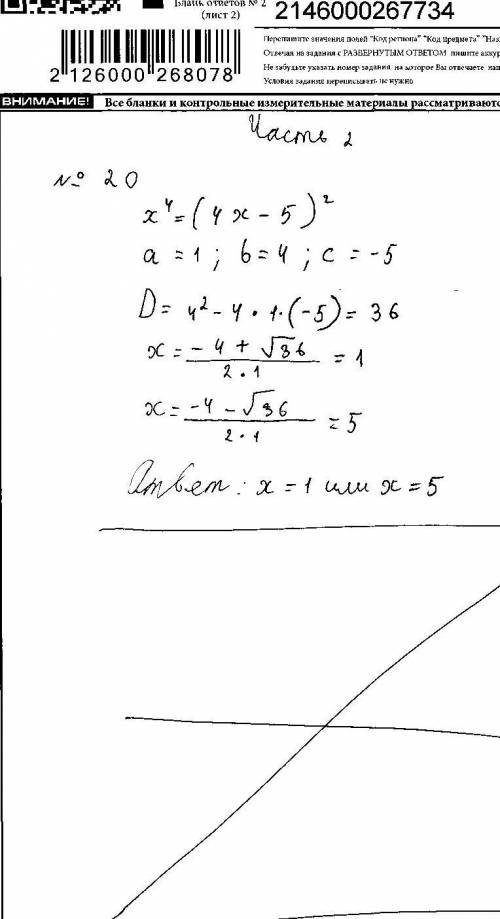 Бланк ответов № 2
(лист 2)
2146000267734
2 126000 268078
Перепишите значения полей "Код региона" "Код предмета" "Наз
Отвечая на задания с РАЗВЕРНУТЫМ ОТВЕТОМ пишите аккур
Не забудьте указать номер задания на которое Вы отвечаете нап
Условия задания переписывать не нужно
ВНИМАНИЕ! Все бланки и контрольные измерительные материалы рассматриваются
Часть 2
№ 20
x⁴=(4x-5)²
a=1; b=4; c=-5
D=4²-4·1·(-5)=36
x=(-4+√36)/(2·1)=1
x=(-4-√36)/(2·1)=5
Ответ: x=1 или x=5